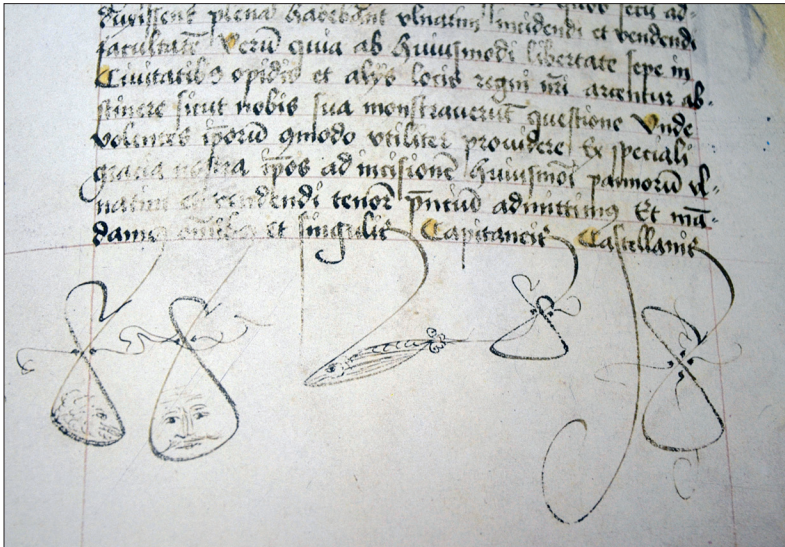 duxissent plena habebant vlnatim incidendi et vendendi
facultatē Verū quia ab huiusmodi libertate sepe in
Ciuitatibȝ opidis et alijs locis regni nr̄i arcentur ab-
stinere sicut nobis sua monstrauerūt questione Vnde
volentes ip̄orū qmodo vtiliter prouidere Ex speciali
gracia nostra ip̄os ad incisionē huiusmōi pannorū vl-
natim et vendendi tenor̄ p̄ntiū admittimꝰ Et mā-
damꝰ om̄ibꝰ et singulis Capitaneis Castellanis